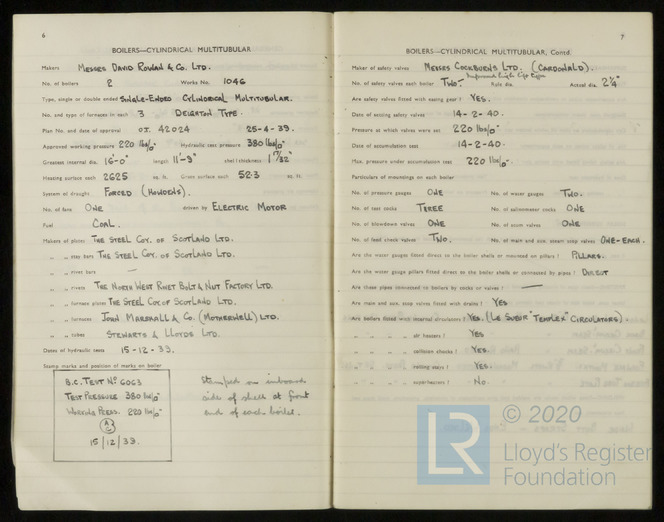 6
BOILERS—CYLINDRICAL MULTITUBULAR
Makers Messrs David Rowan & Co. Ltd.
No. of boilers 2 Works No. 1046
Type, single or double ended Single-Ended Cylindrical Multitubular.
No. and type of furnaces in each 3 Deighton Type.
Plan No. and date of approval O.T. 42024 25-4-39.
Approved working pressure 220 lbs/□" Hydraulic test pressure 380 lbs/□"
Greatest internal dia. 16'-0" length 11'-9" shell thickness 1 17/32"
Heating surface each 2625 sq. ft. Grate surface each 52.3 sq. ft.
System of draught Forced (Howdens).
No. of fans One driven by Electric Motor
Fuel Coal.
Makers of plates The Steel Coy. of Scotland Ltd.
„ „ stay bars The Steel Coy. of Scotland Ltd.
„ „ rivet bars —
„ „ rivets The North West Rivet Bolt & Nut Factory Ltd.
„ „ furnace plates The Steel Coy of Scotland Ltd.
„ „ furnaces John Marshall & Co. (Motherwell) Ltd.
„ „ tubes Stewarts & Lloyds Ltd.
Dates of hydraulic tests 15-12-39.
Stamp marks and position of marks on boiler
B.C. Test No 6063
Test Pressure 380 lbs/□"
Working Press. 220 lbs/□"
15/12/39.
Stamped on inboard
side of shell at front
end of each boiler.
7
BOILERS—CYLINDRICAL MULTITUBULAR, Contd.
Maker of safety valves Messrs Cockburns Ltd. (Cardonald).
No. of safety valves each boiler Two- Improved high lift type Rule dia. Actual dia. 2¼"
Are safety valves fitted with easing gear? Yes.
Date of setting safety valves 14-2-40.
Pressure at which valves were set 220 lbs/□"
Date of accumulation test 14-2-40.
Max. pressure under accumulation test 220 lbs/□"
Particulars of mountings on each boiler
No. of pressure gauges One No. of water gauges Two.
No. of test cocks Three No. of salinometer cocks One
No. of blowdown valves One No. of scum valves One
No. of feed check valves Two. No. of main and aux. steam stop valves One-Each.
Are the water gauges fitted direct to the boiler shells or mounted on pillars? Pillars.
Are the water gauge pillars fitted direct to the boiler shells or connected by pipes? Direct
Are these pipes connected to boilers by cocks or valves? —
Are main and aux. stop valves fitted with drains? Yes
Are boilers fitted with internal circulators? Yes. (Le Sueur "Templex" Circulators)
„ „ „ „ air heaters? Yes
„ „ „ „ collision chocks? Yes.
„ „ „ „ rolling stays? Yes.
„ „ „ „ superheaters? No.
LR
© 2020
Lloyd's Register
Foundation